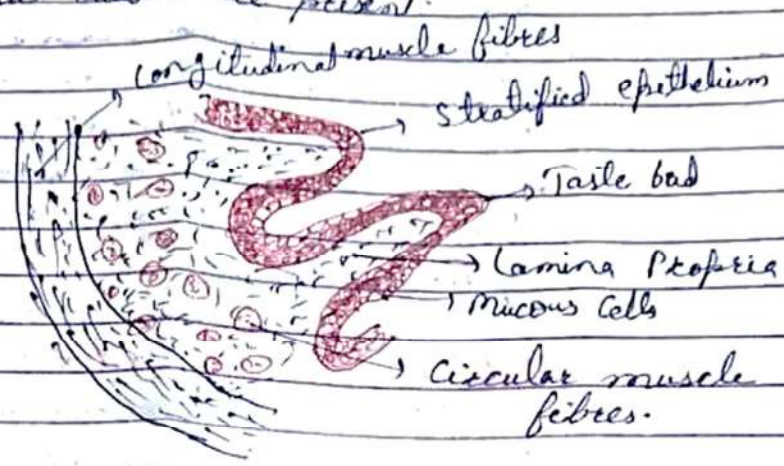 present.
Longitudinal muscle fibres
Stratified epethelium
Taste bud
Lamina Propria
Mucous Cells
Circular muscle
fibres.